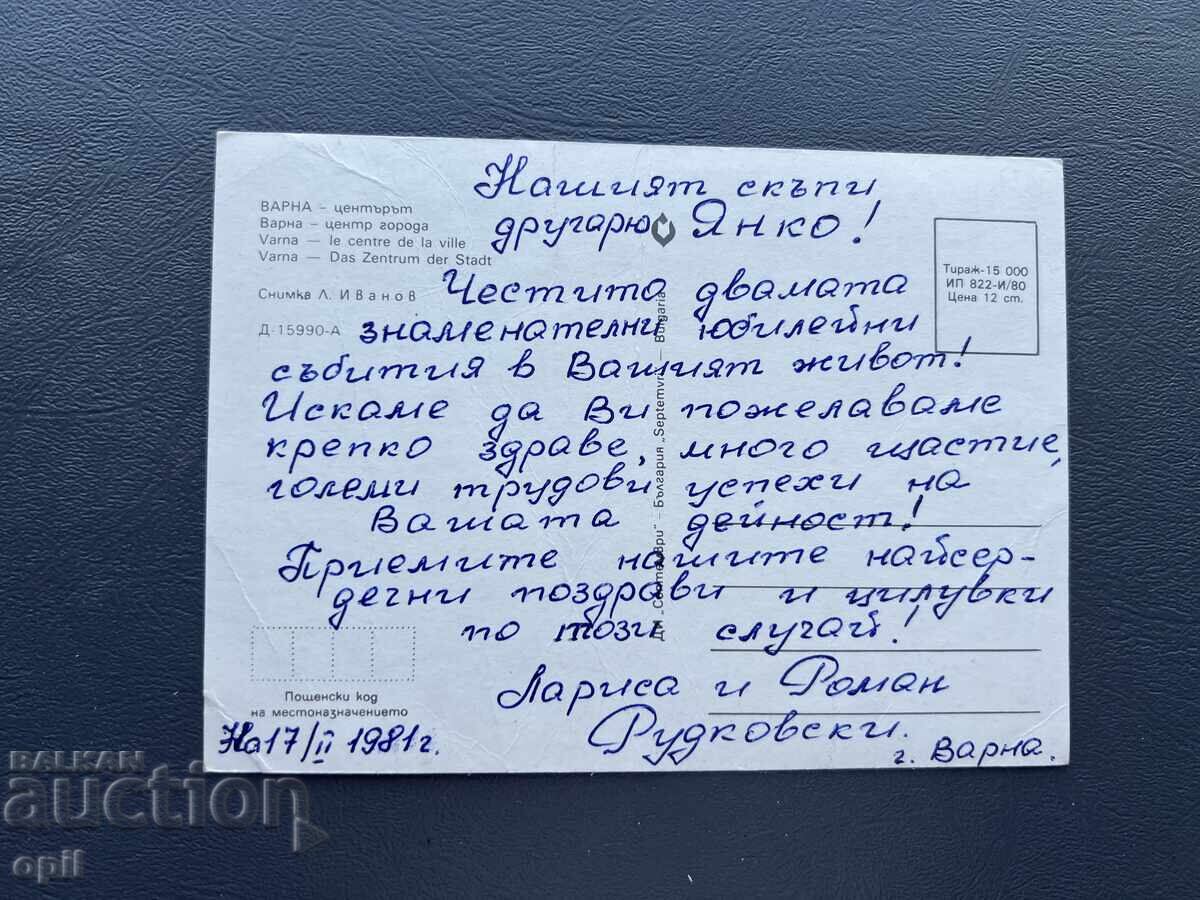 ВАРНА – центърът
Варна – центр города
Varna – le centre de la ville
Varna – Das Zentrum der Stadt
Снимка Л. Иванов
Д-15990-А
Нашият скъпи
другарю Янко!
Честито двамата
знаменателни юбилейни
събития в Вашият живот!
Искаме да Ви пожелаваме
крепко здраве, много щастие,
големи трудови успехи на
Вашата дейност!
Приемите нашите найсер-
дечни поздрави и цилувки
по този случай!
Лариса и Роман
Рудковски.
г. Варна.
На 17/II 1981 г.
Тираж-15 000
ИП 822-И/80
Цена 12 ст.
ДП „Септември" – България „Septemvri" – Bulgaria
Пощенски код
на местоназначението
BALKAN
auction
opil